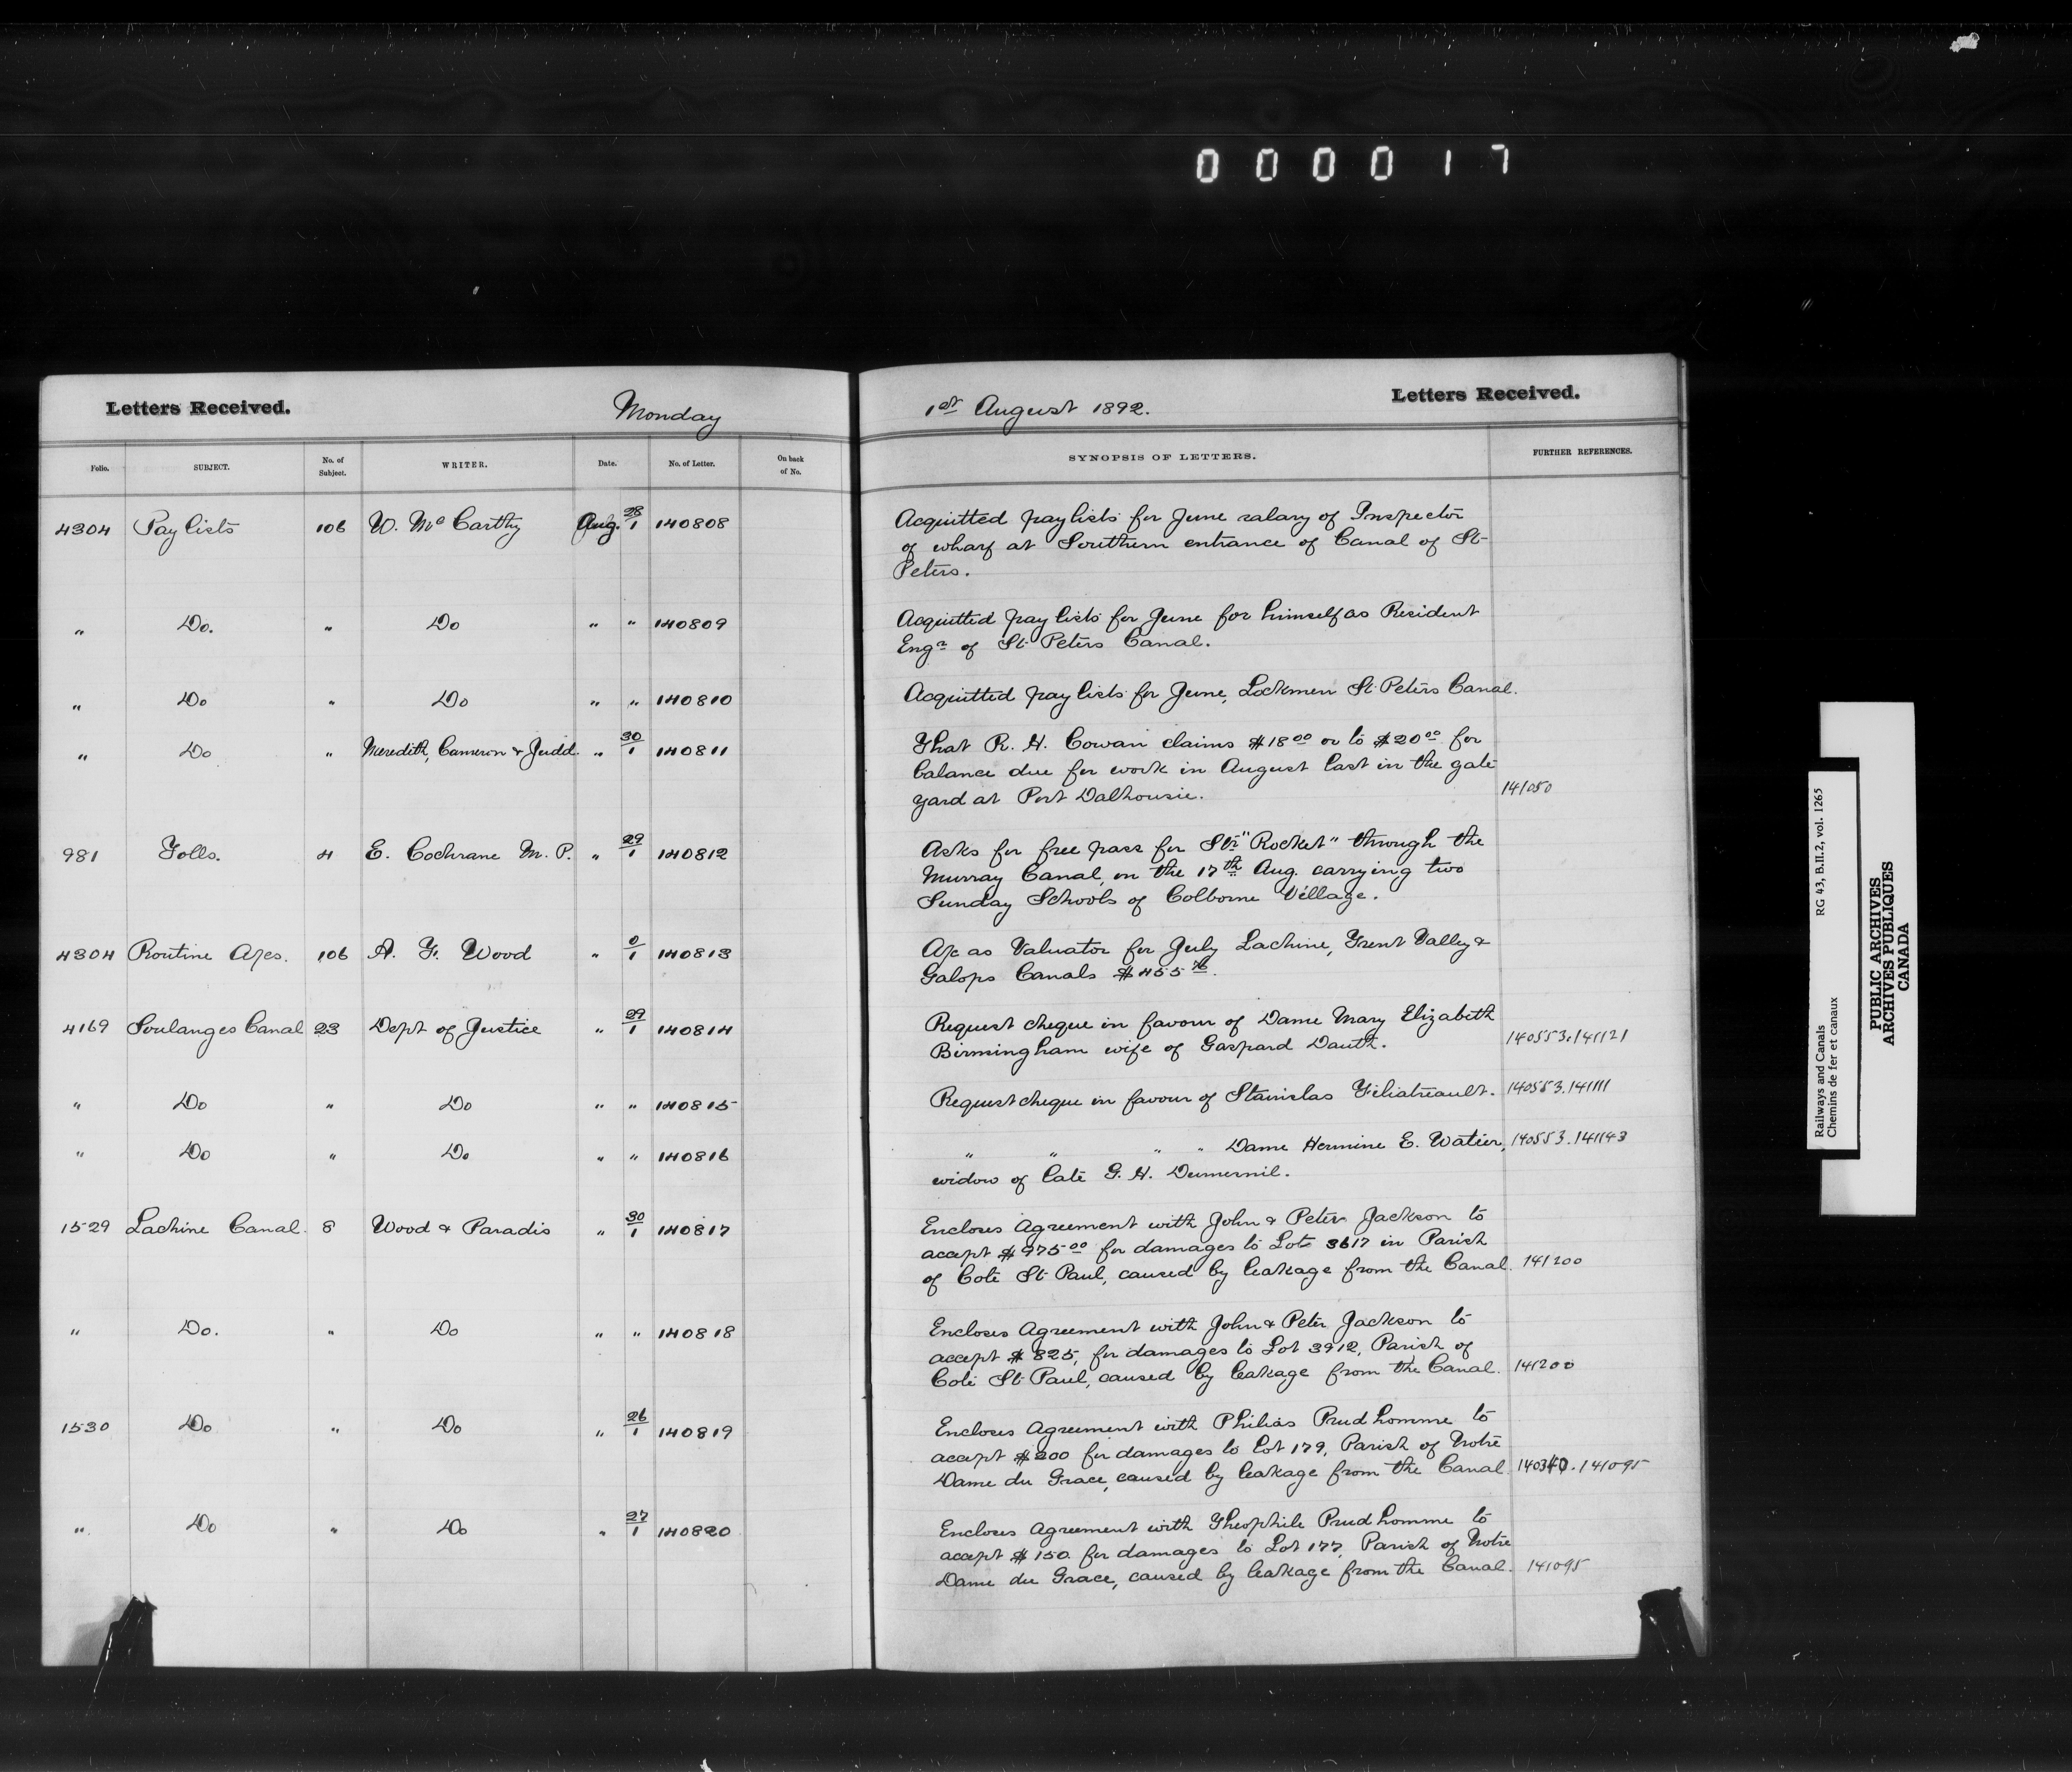 000017
Letters Received. Monday 1st August 1892. Letters Received.
Folio. SUBJECT. No. of Subject. WRITER. Date. No. of Letter. On back of No. SYNOPSIS OF LETTERS. FURTHER REFERENCES.
4304 Pay lists 106 W. McCarthy Aug. 28/1 140808 Acquitted pay lists for June salary of Inspector
of wharf at Southern entrance of Canal of St
Peters.
" Do. " Do " " 140809 Acquitted pay lists for June for himself as Resident
Engr of St Peters Canal.
" Do " Do " " 140810 Acquitted pay lists for June, Lockmen St. Peters Canal.
" Do " Meredith, Cameron & Judd. " 30/1 140811 That R. H. Cowan claims $18 00 or to $20 00 for
balance due for work in August last in the gate
yard at Port Dalhousie. 141050
981 Tolls. 4 E. Cochrane M. P. " 29/1 140812 Asks for free pass for Str "Rocket" through the
Murray Canal, on the 17th Aug. carrying two
Sunday Schools of Colborne Village.
4304 Routine A/cs. 106 A. F. Wood " 0/1 140813 A/c as Valuator for July Lachine, Trent Valley &
Galops Canals $455 76.
4169 Soulanges Canal 23 Dept of Justice " 29/1 140814 Request cheque in favour of Dame Mary Elizabeth
Birmingham wife of Gaspard Dauth. 140553.141121
" Do " Do " " 140815 Request cheque in favour of Stanislas Filiatreault. 140553.141111
" Do " Do " " 140816 " " " " Dame Hermine E. Watier, 140553.141143
widow of late G. H. Dumesnil.
1529 Lachine Canal. 8 Wood & Paradis " 30/1 140817 Encloses Agreement with John & Peter Jackson to
accept $975 00 for damages to Lot 3617 in Parish
of Cote St Paul, caused by leakage from the Canal. 141200
" Do. " Do " " 140818 Encloses Agreement with John & Peter Jackson to
accept $825, for damages to Lot 3912, Parish of
Cote St Paul, caused by leakage from the Canal. 141200
1530 Do " Do " 26/1 140819 Encloses Agreement with Philias Prudhomme to
accept $200 for damages to Lot 179, Parish of Notre
Dame du Grace, caused by leakage from the Canal 140340.141095
" Do " Do " 27/1 140820 Encloses Agreement with Theophile Prudhomme to
accept $150. for damages to Lot 177, Parish of Notre
Dame du Grace, caused by leakage from the Canal. 141095
Railways and Canals RG 43, B.II.2, vol. 1265
Chemins de fer et canaux
PUBLIC ARCHIVES
ARCHIVES PUBLIQUES
CANADA